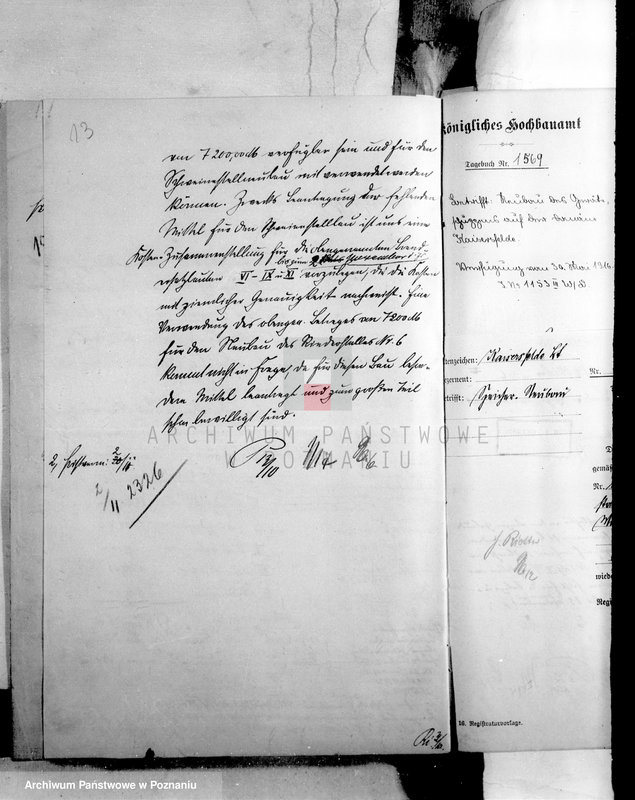 13
von 7200,00 M verfügbar sein und für den
Schweinestallneubau mit verwendet werden
können. Zwecks Beantragung der fehlenden
Mittel für den Schweinestallbau ist uns eine
Kosten-Zusammenstellung für die obengenannten Brand-
bis zum
ersatzbauten VI-IX u XI vorzulegen, die die Kosten
mit ziemlicher Genauigkeit nachweist. Eine
Verwendung des obengen. Betrages von 7200 M
für den Neubau des Viehstalles Nr. 6
kommt nicht in Frage, da für diesen Bau beson-
dere Mittel beantragt und zum großen Teil
schon bewilligt sind.
2,
2/11 2326
Königliches Hochbauamt
Tagebuch Nr. 1569
Betrifft: Neubau des Geräte-
schuppens auf der Domäne
Kaisersfelde.
Verfügung vom 30. Mai 1916.
J. Nr. 1153 III
enzeichen: Kaisersfelde
ezernent:
etrifft: Speicher-Neubau
Nr.
gemäß
Nr.
wiede
Regi
16. Registraturvorlage.
ARCHIWUM PAŃSTWOWE
W POZNANIU
Archiwum Państwowe w Poznaniu